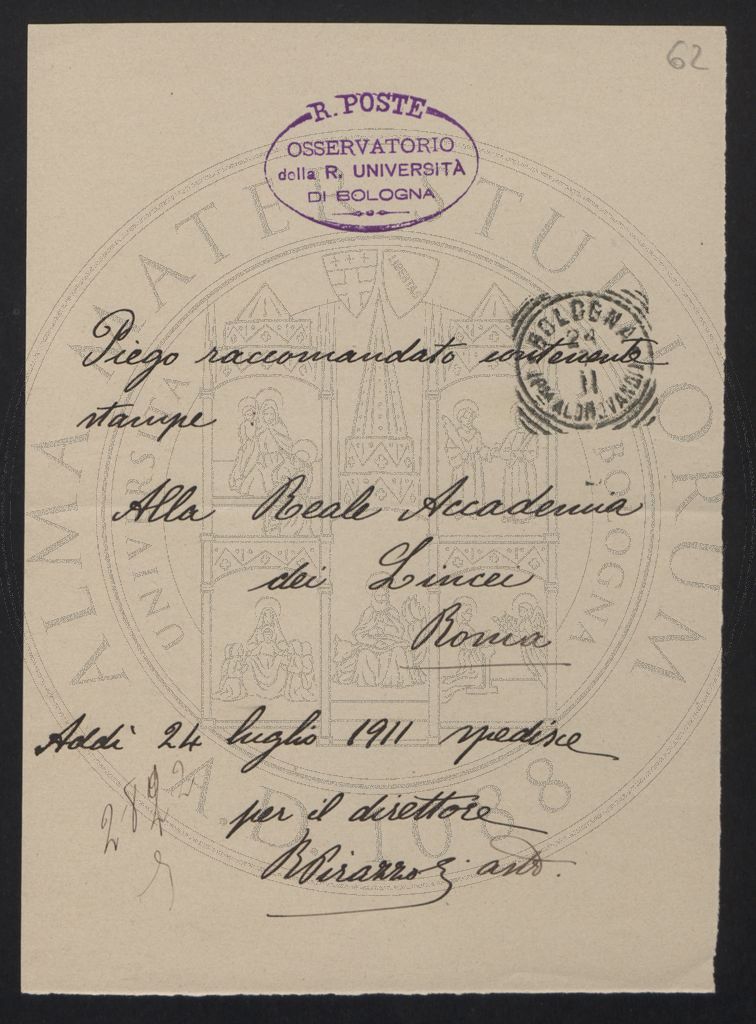 62
R. POSTE
OSSERVATORIO
della R. UNIVERSITÀ
DI BOLOGNA
BOLOGNA
24
11
Piego raccomandato contenente
stampe
Alla Reale Accademia
dei Lincei
Roma
Addì 24 luglio 1911 spedisce
per il direttore
ALMA MATER STUDIORUM
A.D. 1088
UNIVERSITÀ DI BOLOGNA
LIBERTAS